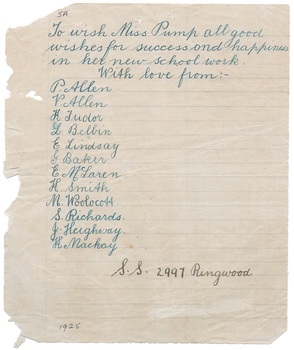 5A
To wish Miss Pump all good
wishes for success and happiness
in her new school work.
With love from:-
P. Allen
V. Allen
H. Tudor
L. Belbin
E. Lindsay
E. Baker
E. McLaren
H. Smith
M. Woolcott
S. Richards.
J. Heighway.
K. Mackay
S.S. 2997 Ringwood
1925